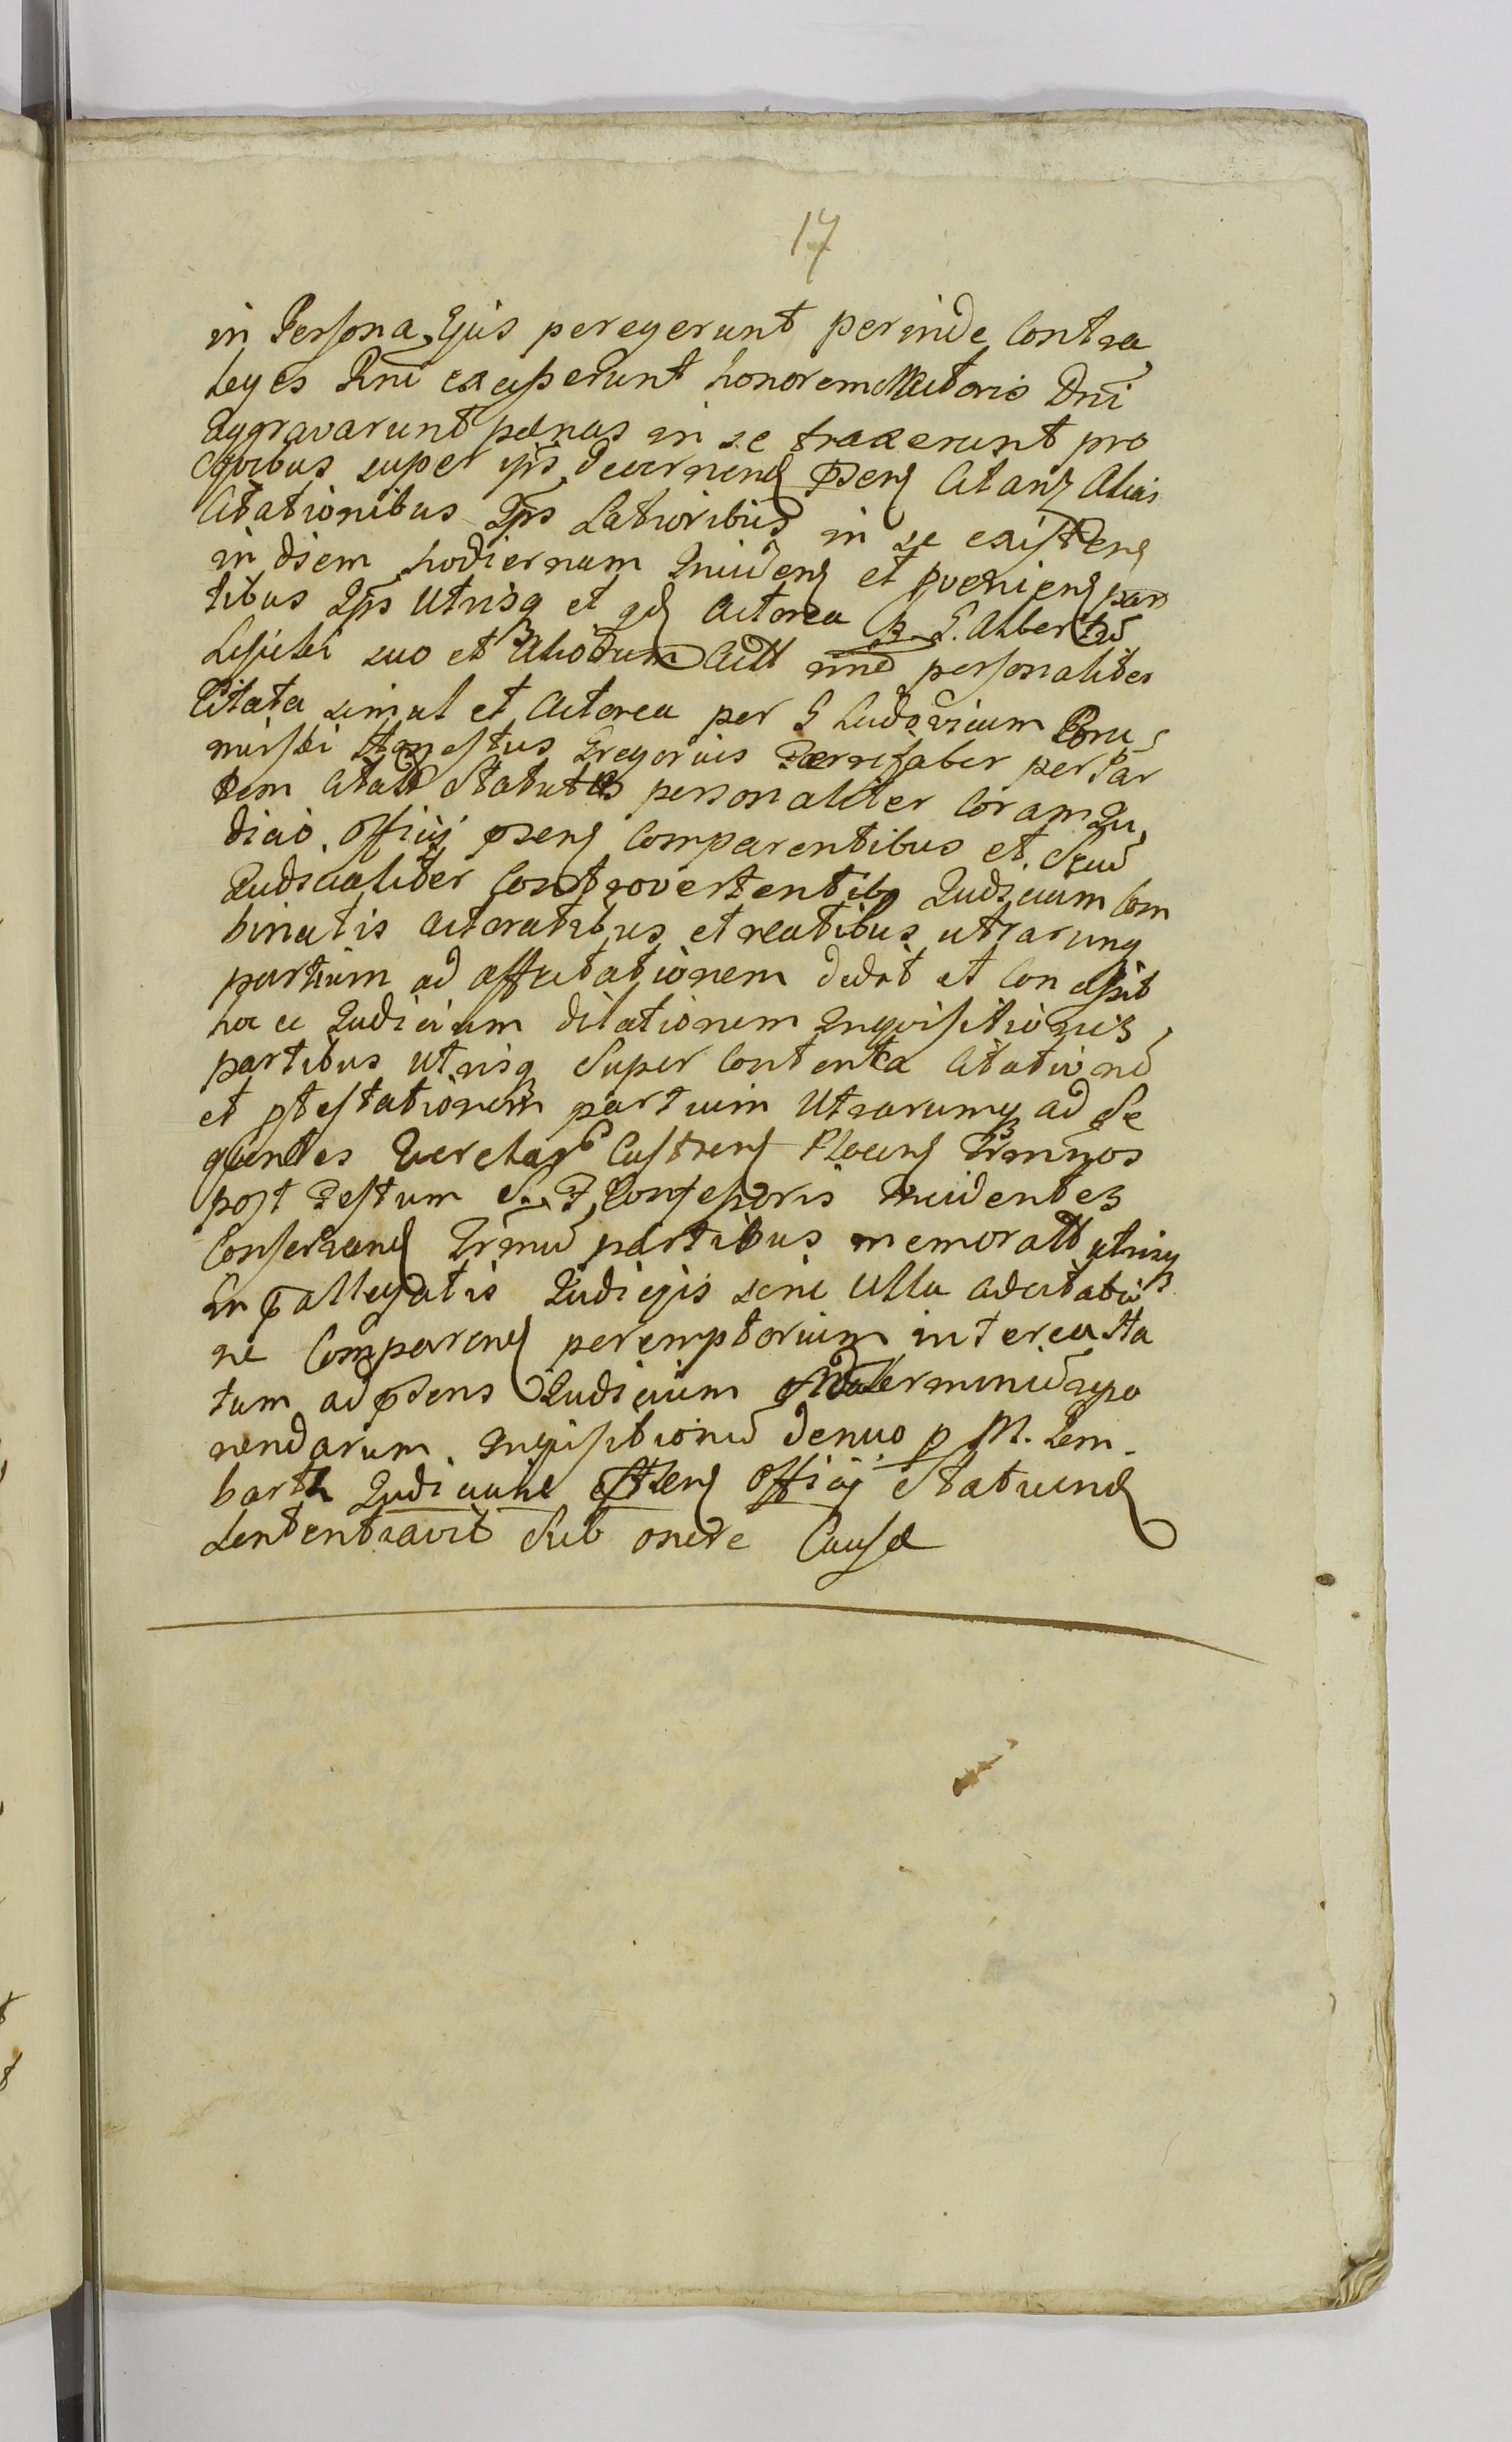 17
in Persona Ejus peregerunt perinde Contra
leges Rni exceperunt honorem Actoris Dni
aggravarunt pænas in se traxerunt pro
quibus super ijs decernend pñsens Citant Alias
Citationibus Ipīs Latioribus in se existens
in diem hodiernam Incidens et pveniens par
tibus Ipīs Utrisq et qd Actorea p G. Albertū
suo et Aliorum Actt nnē personaliter
Citata simul et Actorea per G Ludovicum
Honestus Gregorius per Par
tem Citatā Statutus personaliter Coram Ju
dicio Officij pñsens Comparentibus et Secū
Judicialiter Controvertentibq Judicium Com
binatis actoratibus et reatibus utrarumq
partium ad affectationem dedit et Concessit
hocce Judicium dilationem Inquisitionis
partibus Utrisq Super Contenta Citationū
et ptestationum partium Utrarumq ad Se
quentes Querelarū Castrens Terminos
post Festum S. Confessoris Incidentes
Conservand Trmū partibus memoratt utrisq
In p allegatis Judicijs sine Ulla adcitatio
ne Comparend peremptorium interea Sta
tum ad pñsens Judicium termino repo
nendarum Inquisitionū denuo p M.
Judiciale pñsens Officij Statuend
Sententiavit Sub onere Causæ